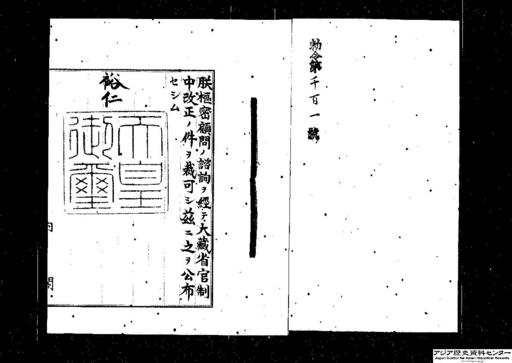 勅令第千百一號
朕樞密顧問ノ諮詢ヲ經テ大藏省官制
中改正ノ件ヲ裁可シ茲ニ之ヲ公布
セシム
裕仁
天皇御璽
内閣
アジア歴史資料センター
Japan Center for Asian Historical Records